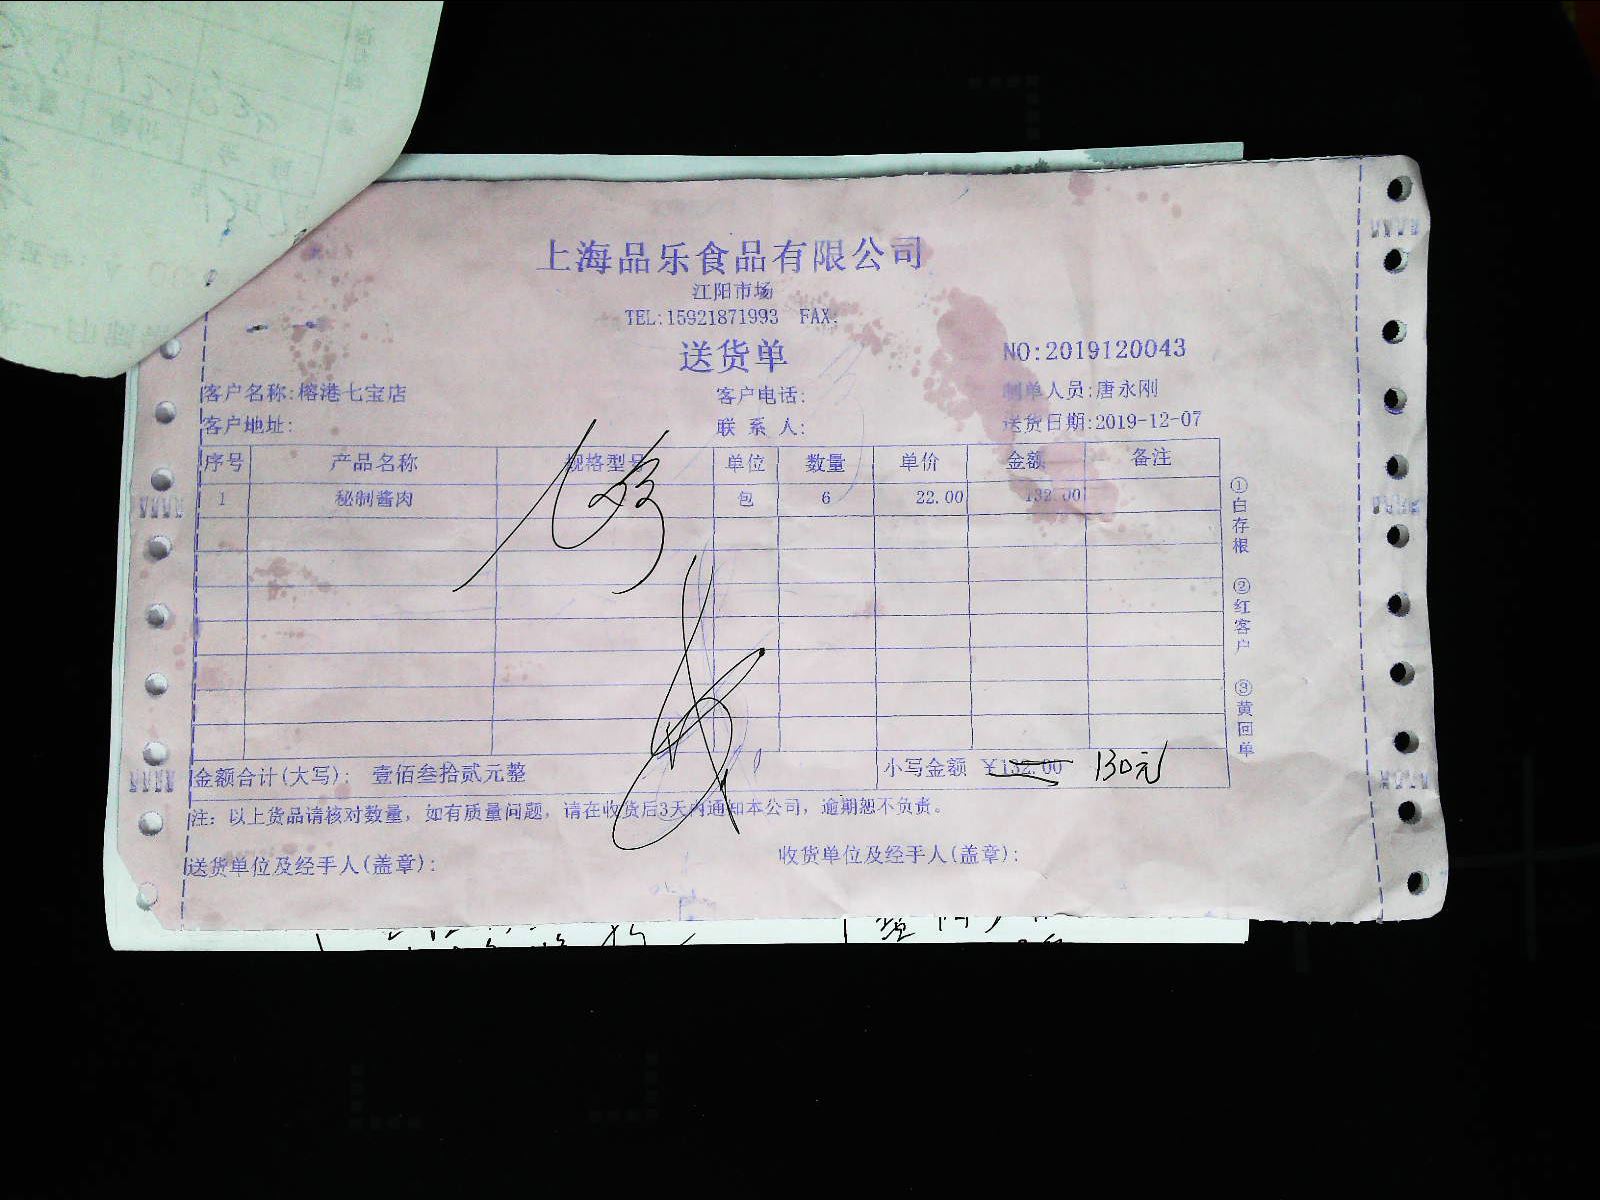 上海品乐食品有限公司
江阳市场
TEL:15921871993 FAX:
送货单
NO:2019120043
客户名称:榕港七宝店 客户电话: 制单人员:唐永刚
客户地址: 联系人: 送货日期:2019-12-07
序号 产品名称 规格型号 单位 数量 单价 金额 备注
1 秘制酱肉 包 6 22.00 132.00
金额合计(大写): 壹佰叁拾贰元整 小写金额 ¥132.00 130元
注: 以上货品请核对数量，如有质量问题，请在收货后3天内通知本公司，逾期恕不负责。
送货单位及经手人(盖章): 收货单位及经手人(盖章):
①白存根 ②红客户 ③黄回单